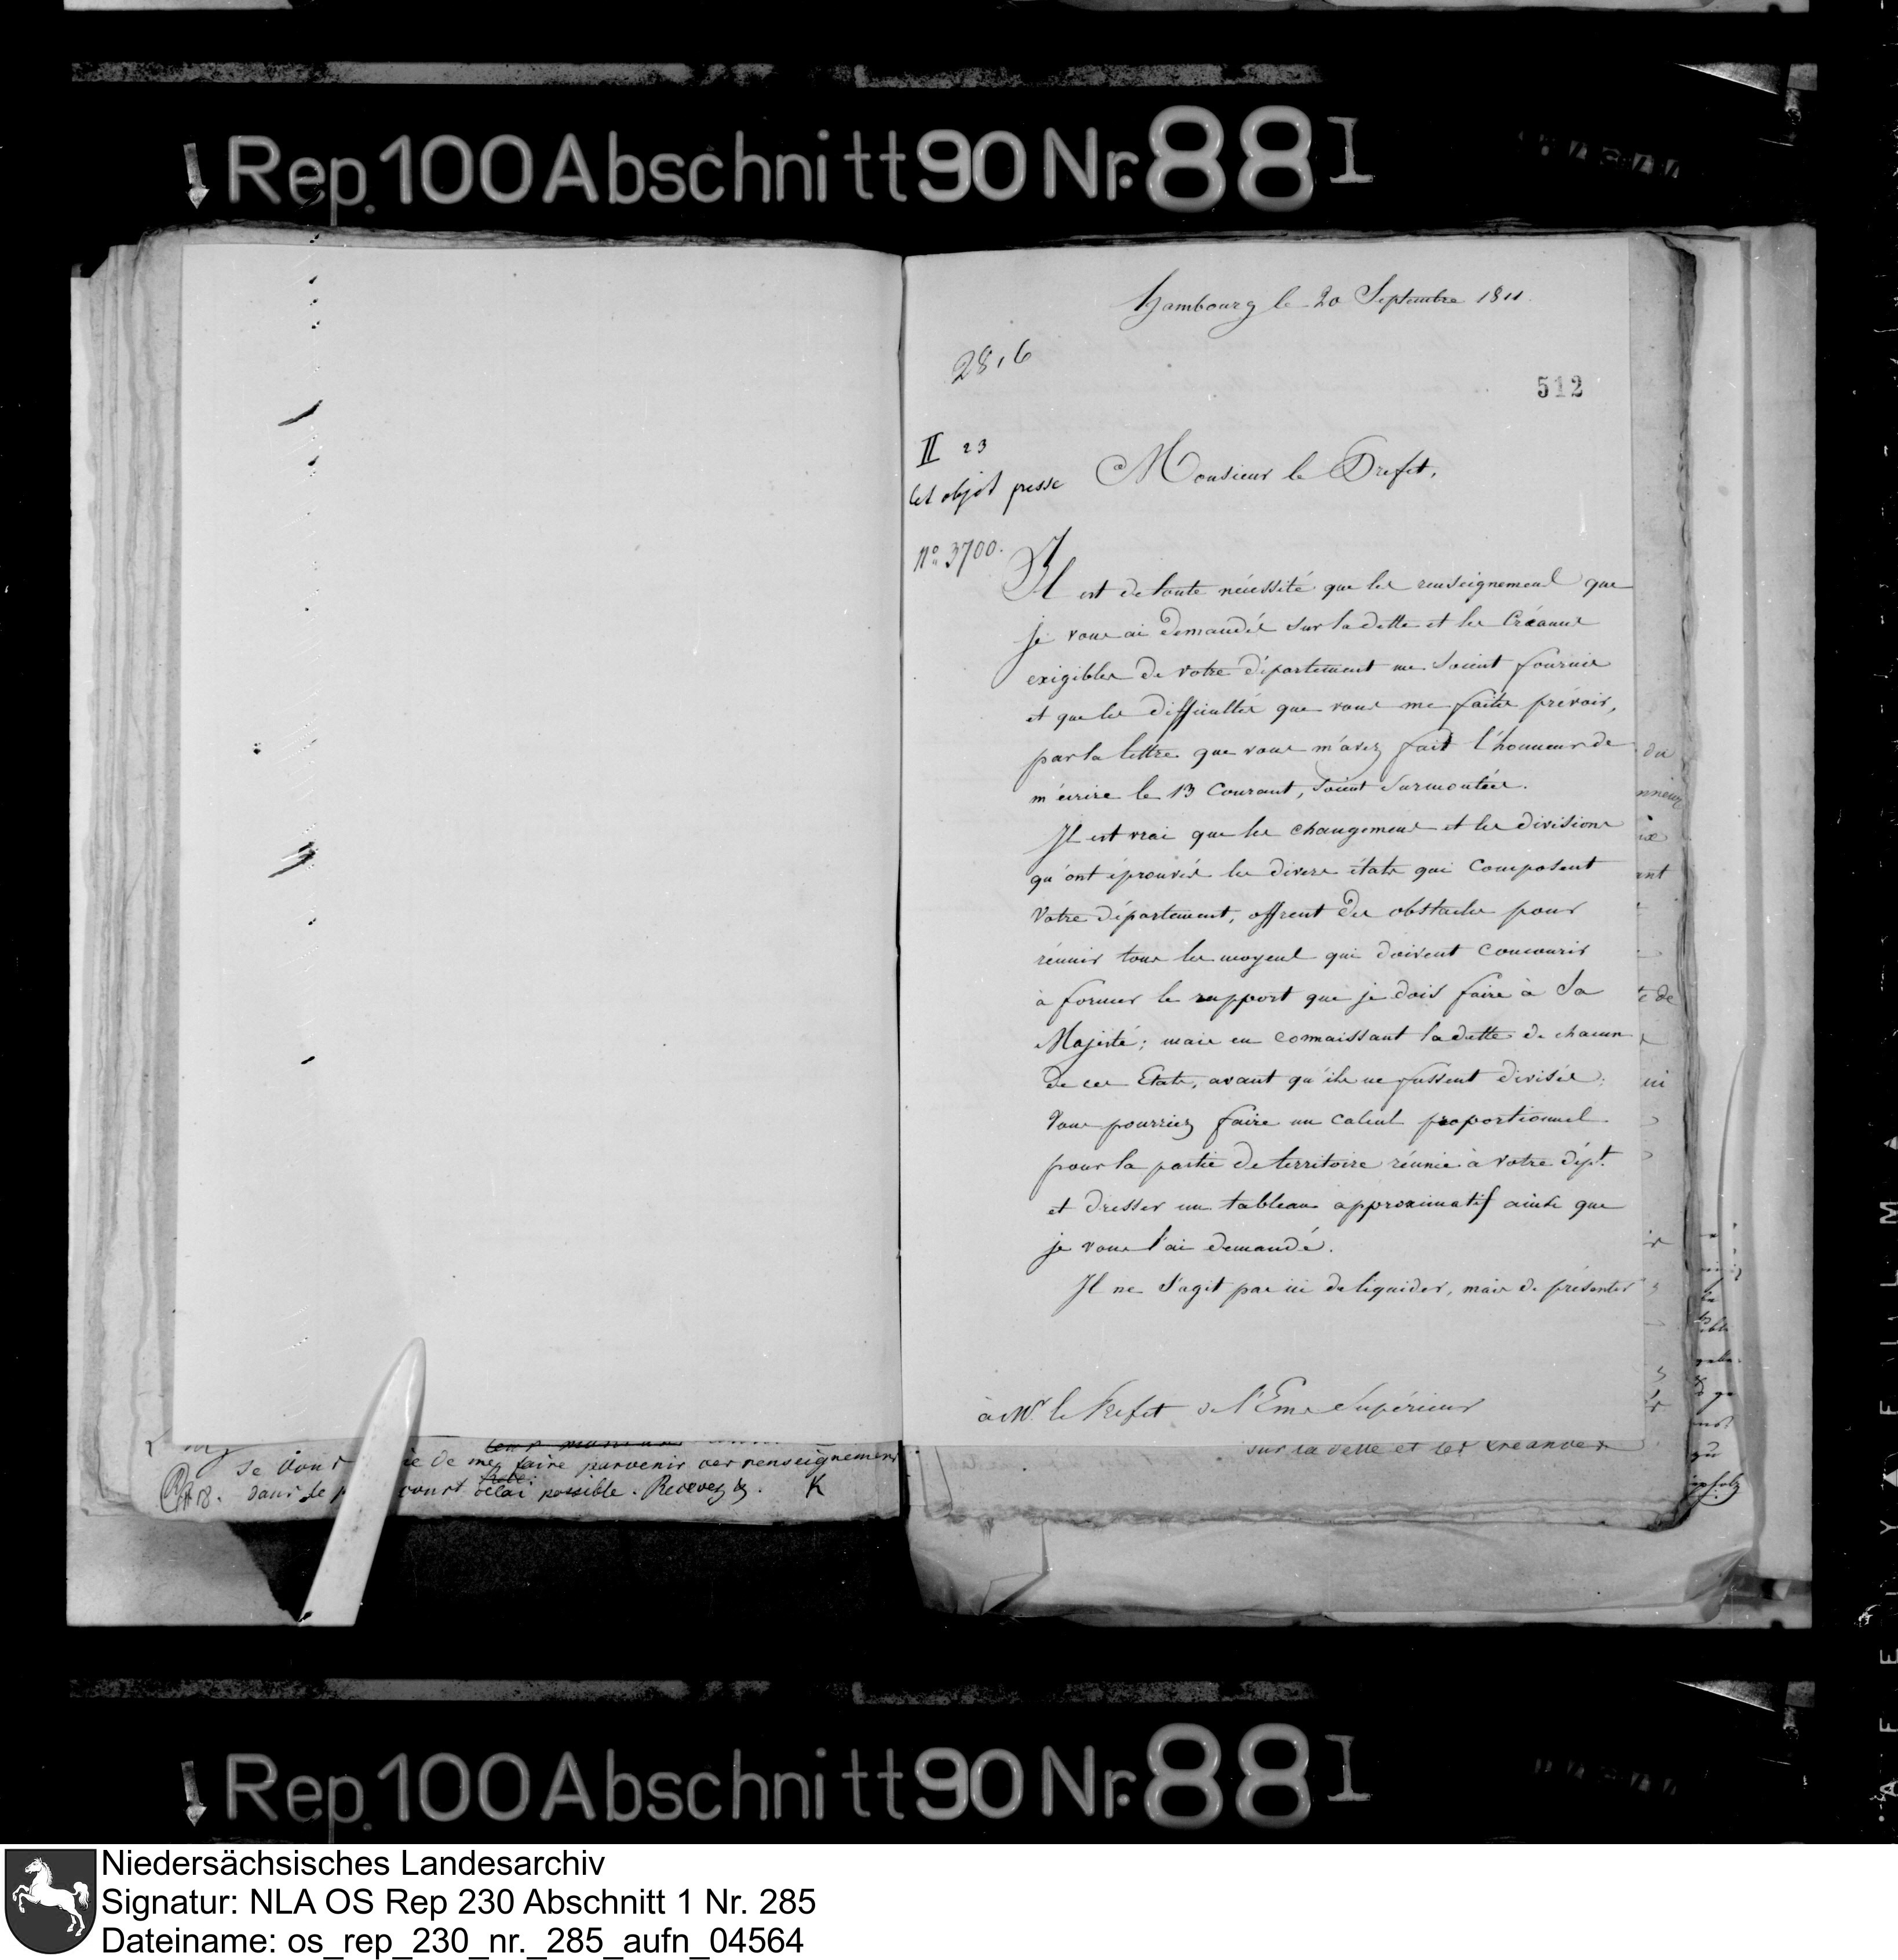 Rep. 100 Abschnitt 90 Nr. 881
Hambourg le 20 Septembre 1811.
2816
512
II 23
Cet objet presse
Monsieur le Préfet,
N° 3700.
Il est de toute nécessité que les renseignemens que
je vous ai demandés sur la dette et les Créances
exigibles de votre département me soient fournis
et que les difficultés que vous me faites prévoir,
par la lettre que vous m'avez fait l'honneur de
m'écrire le 13 Courant, soient surmontées.
Il est vrai que les changemens et les divisions
qu'ont éprouvés les divers états qui Composent
Votre département, offrent des obstacles pour
réunir tous les moyens qui doivent concourir
à former le rapport que je dois faire à Sa
Majesté; mais en connaissant la dette de chacun
de ces Etats, avant qu'ils ne fussent divisés;
Vous pourriez faire un calcul proportionnel
pour la partie de territoire réunie à votre dép.t
et dresser un tableau approximatif ainsi que
je vous l'ai demandé.
Il ne s'agit pas ici de liquider, mais de présenter
à Mr. le Préfet de l'Ems Supérieur
Je vous de me faire parvenir ces renseignemens
dans le court délai possible. Recevez K
sur la dette et les Créances
Rep. 100 Abschnitt 90 Nr. 881
Niedersächsisches Landesarchiv
Signatur: NLA OS Rep 230 Abschnitt 1 Nr. 285
Dateiname: os_rep_230_nr._285_aufn_04564